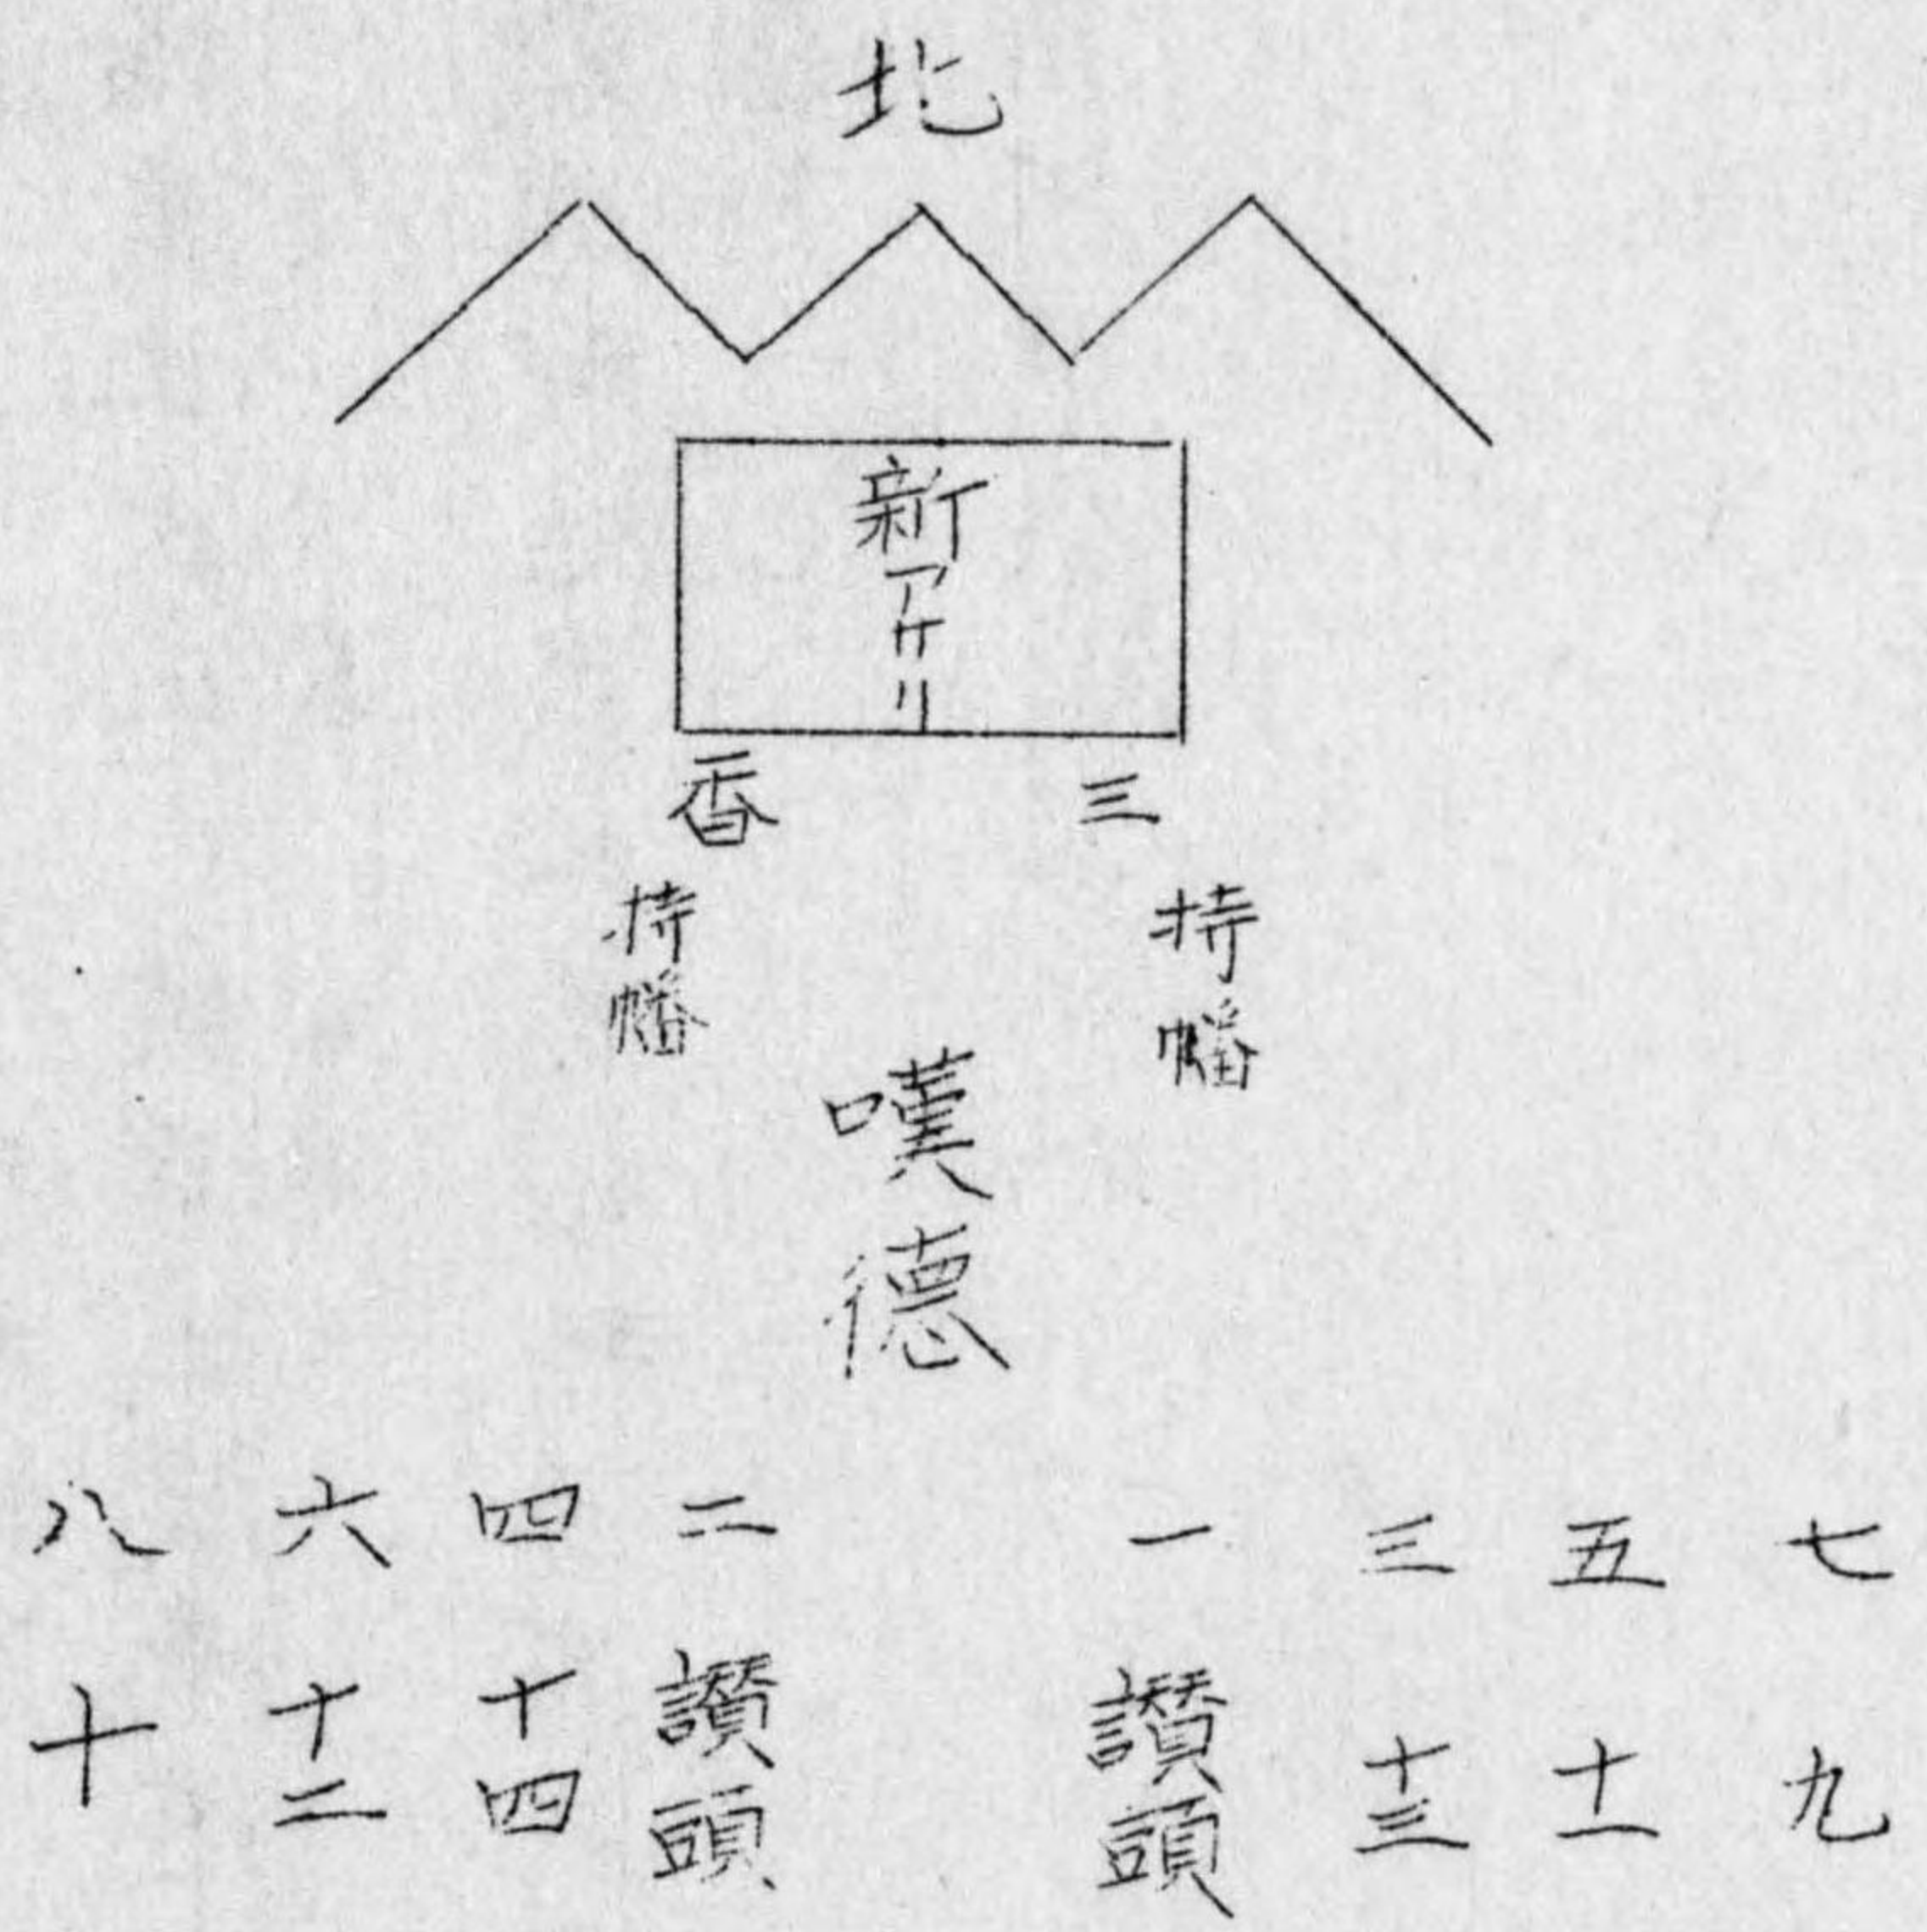 北
新アケリ
香
三
持幡
持幡
嘆徳
八 六 四 二 一 三 五 七
十 十二 十四 讃頭 讃頭 十三 十一 九